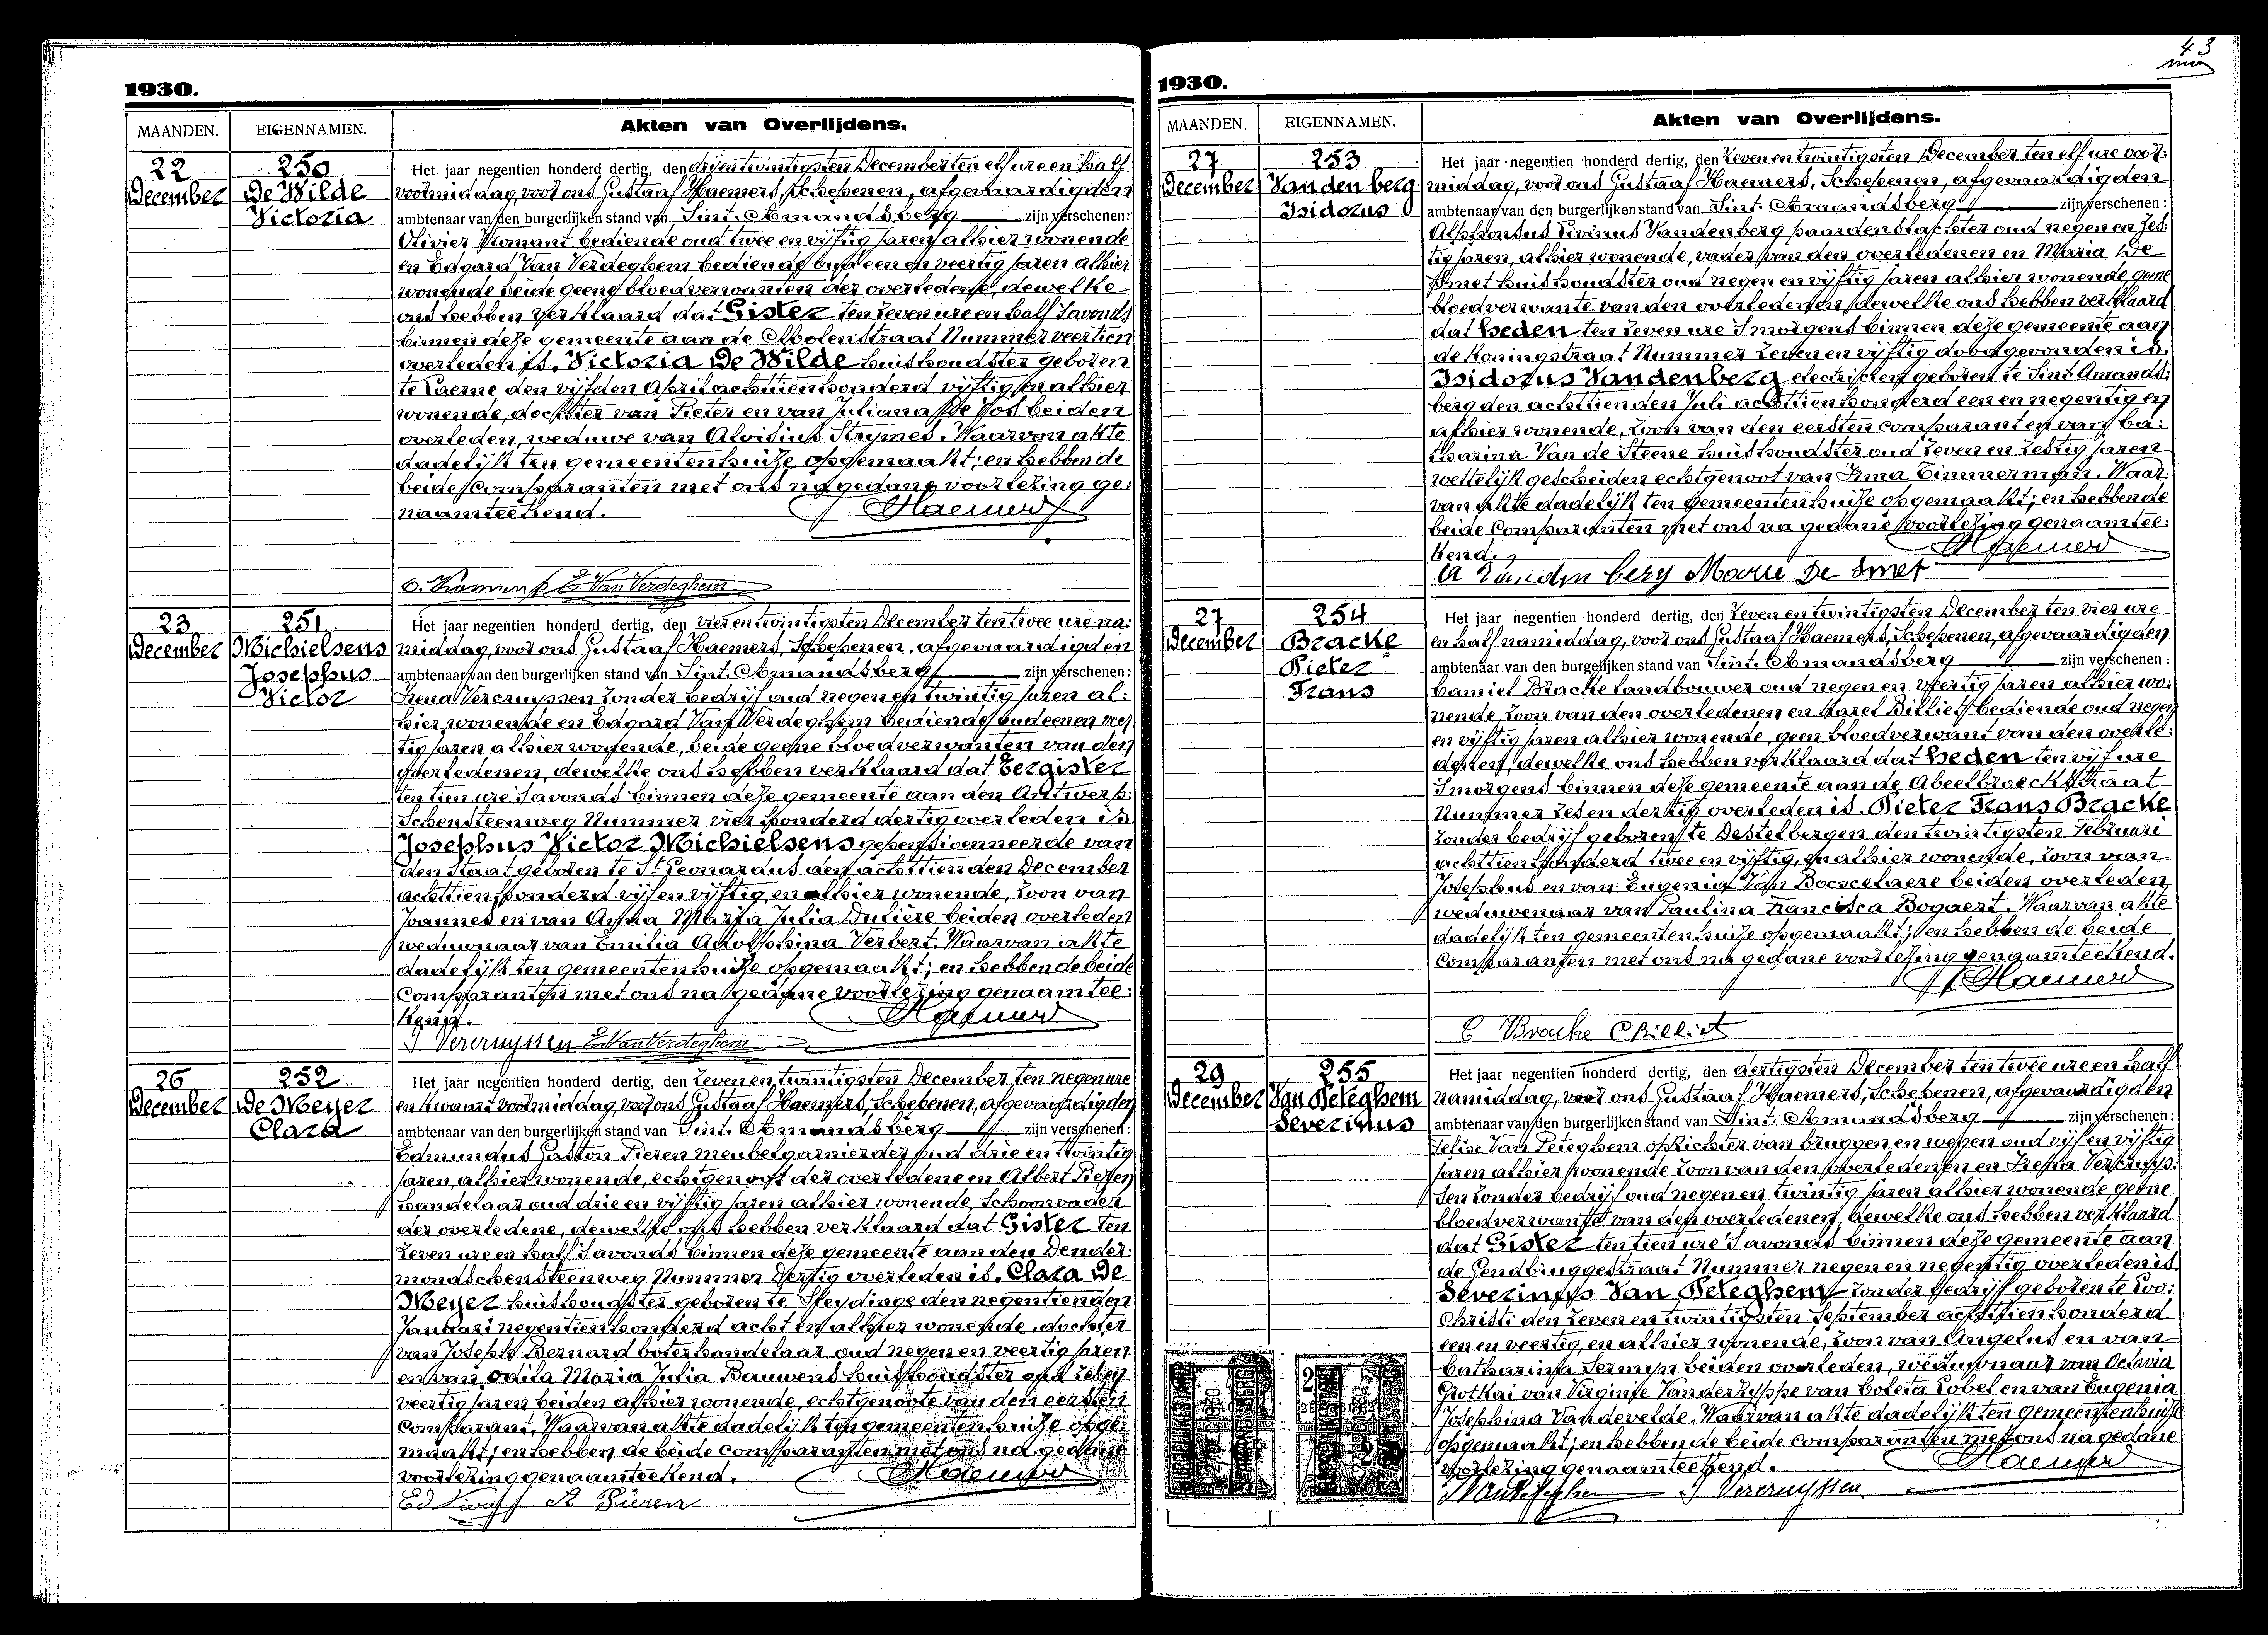 1930.
MAANDEN. EIGENNAMEN. Akten van Overlijdens.
22 December
250
De Wilde
Victoria
Het jaar negentien honderd dertig, den drijentwintigsten December ten elf ure en half
voormiddag, voor ons Gustaaf Haemers, Schepenen, afgevaardigden
ambtenaar van den burgerlijken stand van Sint. Amandsberg zijn verschenen:
Olivier Vromant bediende oud twee en vijftig jaren alhier wonende
en Edgard Van Verdeghem bediende oud een en veertig jaren alhier
wonende beide geene bloedverwanten der overledene, dewelke
ons hebben verklaard dat Gister ten zeven ure en half 's avonds
binnen deze gemeente aan de Molenstraat Nummer veertien
overleden is, Victoria De Wilde huishoudster geboren
te Laerne den vijfden April achttien honderd vijftig en alhier
wonende, dochter van Pieter en van Juliana De Vos beiden
overleden, weduwe van Aloisius Strymes. Waarvan akte
dadelijk ten gemeentenhuize opgemaakt; en hebben de
beide Comparanten met ons na gedane voorlezing ge:
naamteekend. Haemers
E. Van Verdeghem
23 December
251
Michielsens
Josephus
Victor
Het jaar negentien honderd dertig, den vierentwintigsten December ten twee ure na:
middag, voor ons Gustaaf Haemers, Schepenen, afgevaardigden
ambtenaar van den burgerlijken stand van Sint. Amandsberg zijn verschenen:
Irena Vercruyssen zonder bedrijf oud negen en twintig jaren al:
hier wonende en Edgard Van Verdeghem bediende oud een en veer
tig jaren alhier wonende, beide geene bloedverwanten van den
overledenen, dewelke ons hebben verklaard dat Eergister
ten tien ure 's avonds binnen deze gemeente aan den Antwerp:
schensteenweg Nummer vier honderd dertig overleden is
Josephus Victor Michielsens gepensioenneerde van
den Staat geboren te St Leonardus den achttienden December
achttien honderd vijf en vijftig, en alhier wonende, zoon van
Joannes en van Anna Maria Julia Dulière beiden overleden
weduwnaar van Emilia Adolphina Verbert. Waarvan akte
dadelijk ten gemeentenhuize opgemaakt; en hebben de beide
Comparanten met ons na gedane voorlezing genaamtee:
kend. Haemers
I Vercruyssen E. Van Verdeghem
26 December
252
De Meyer
Clara
Het jaar negentien honderd dertig, den zeven en twintigsten December ten negen ure
en kwaart voormiddag, voor ons Gustaaf Haemers, Schepenen, afgevaardigden
ambtenaar van den burgerlijken stand van Sint. Amandsberg zijn verschenen:
Edmundus Gaston Pieren meubelgarnierder oud drie en twintig
jaren, alhier wonende, echtgenoot der overledene en Albert Pieren
handelaar oud drie en vijftig jaren alhier wonende, schoonvader
der overledene, dewelke ons hebben verklaard dat Gister ten
zeven ure en half 's avonds binnen deze gemeente aan den Dender:
mondschensteenweg Nummer dertig overleden is. Clara De
Meyer huishoudster geboren te Sleydinge den negentienden
Januari negentien honderd acht en alhier wonende, dochter
van Joseph Bernard boterhandelaar oud negen en veertig jaren
en van Odila Maria Julia Bauwens huishoudster oud zes en
veertig jaren beiden alhier wonende, echtgenoote van den eersten
Comparant. Waarvan akte dadelijk ten gemeentenhuize opge:
maakt; en hebben de beide comparanten met ons na gedane
voorlezing genaamteekend. Haemers
A Pieren
43
1930.
MAANDEN. EIGENNAMEN. Akten van Overlijdens.
27 December
253
Vandenberg
Isidorus
Het jaar negentien honderd dertig, den zeven en twintigsten December ten elf ure voor:
middag, voor ons Gustaaf Haemers, Schepenen, afgevaardigden
ambtenaar van den burgerlijken stand van Sint. Amandsberg zijn verschenen:
Alphonsus Livinus Vandenberg paardenslachter oud negen en zes:
tig jaren, alhier wonende, vader van den overledenen en Maria De
Smet huishoudster oud negen en vijftig jaren alhier wonende geene
bloedverwante van den overledenen, dewelke ons hebben verklaard
dat heden ten zeven ure 's morgens binnen deze gemeente aan
de Koningstraat Nummer zeven en vijftig dood gevonden is.
Isidorus Vandenberg electricien geboren te Sint. Amands:
berg den achttienden Juli achttien honderd een en negentig en
alhier wonende, zoon van den eersten Comparant en van Ca:
tharina Van de Steene huishoudster oud zeven en zestig jaren
wettelijk gescheiden echtgenoot van Irma Timmerman. Waar:
van akte dadelijk ten Gemeentenhuize opgemaakt; en hebben de
beide Comparanten met ons na gedane voorlezing genaamtee:
kend. Haemers
A Vanden berg Marie De Smet
27 December
254
Bracke
Pieter
Frans
Het jaar negentien honderd dertig, den zeven en twintigsten December ten vier ure
en half namiddag, voor ons Gustaaf Haemers, Schepenen, afgevaardigden
ambtenaar van den burgerlijken stand van Sint. Amandsberg zijn verschenen:
Camiel Bracke landbouwer oud negen en veertig jaren alhier wo:
nende, zoon van den overledenen en Karel Billiet bediende oud negen
en vijftig jaren alhier wonende, geen bloedverwant van den overle:
denen, dewelke ons hebben verklaard dat heden ten vijf ure
's morgens binnen deze gemeente aan de Abeelbroeckstraat
Nummer zes en dertig overleden is. Pieter Frans Bracke
zonder bedrijf geboren te Destelbergen den twintigsten Februari
achttien honderd twee en vijftig, en alhier wonende, zoon van
Josephus en van Eugenia Van Bocscelaere beiden overleden,
weduwenaar van Paulina Francisca Bogaert. Waarvan akte
dadelijk ten gemeentenhuize opgemaakt; en hebben de beide
Comparanten met ons na gedane voorlezing genaamteekend.
Haemers
C Bracke C Billiet
29 December
255
Van Peteghem
Severinus
Het jaar negentien honderd dertig, den dertigsten December ten twee ure en half
namiddag, voor ons Gustaaf Haemers, Schepenen, afgevaardigden
ambtenaar van den burgerlijken stand van Sint. Amandsberg zijn verschenen:
Felise Van Peteghem opzichter van bruggen en wegen oud vijf en vijftig
jaren alhier wonende zoon van den overledenen en Irena Vercruys:
sen zonder bedrijf oud negen en twintig jaren alhier wonende geene
bloedverwante van den overledenen, dewelke ons hebben verklaard
dat Gister ten tien ure 's avonds binnen deze gemeente aan
de Gendbruggestraat Nummer negen en negentig overleden is.
Severinus Van Peteghem zonder bedrijf geboren te Loo:
Christi den zeven en twintigsten September achttien honderd
een en veertig en alhier wonende, zoon van Angelus en van
Catharina Sermyn beiden overleden, weduwnaar van Octavia
Grotkai van Virginie Vanderzyppe van Coleta Lobel en van Eugenia
Josephina Vandevelde. Waarvan akte dadelijk ten Gemeentenhuize
opgemaakt; en hebben de beide Comparanten met ons na gedane
voorlezing genaamteekend. Haemers
I Vercruyssen